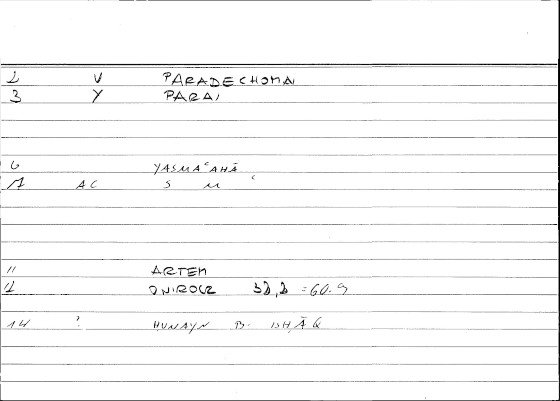 2 V PARADECHOMAI
3 Y PARAI
6 YASMAʿAHĀ
7 AC S M ʿ
11 ARTEM
12 ONIROCR = 60.9
14 ? HUNAYN B. ISḤĀQ